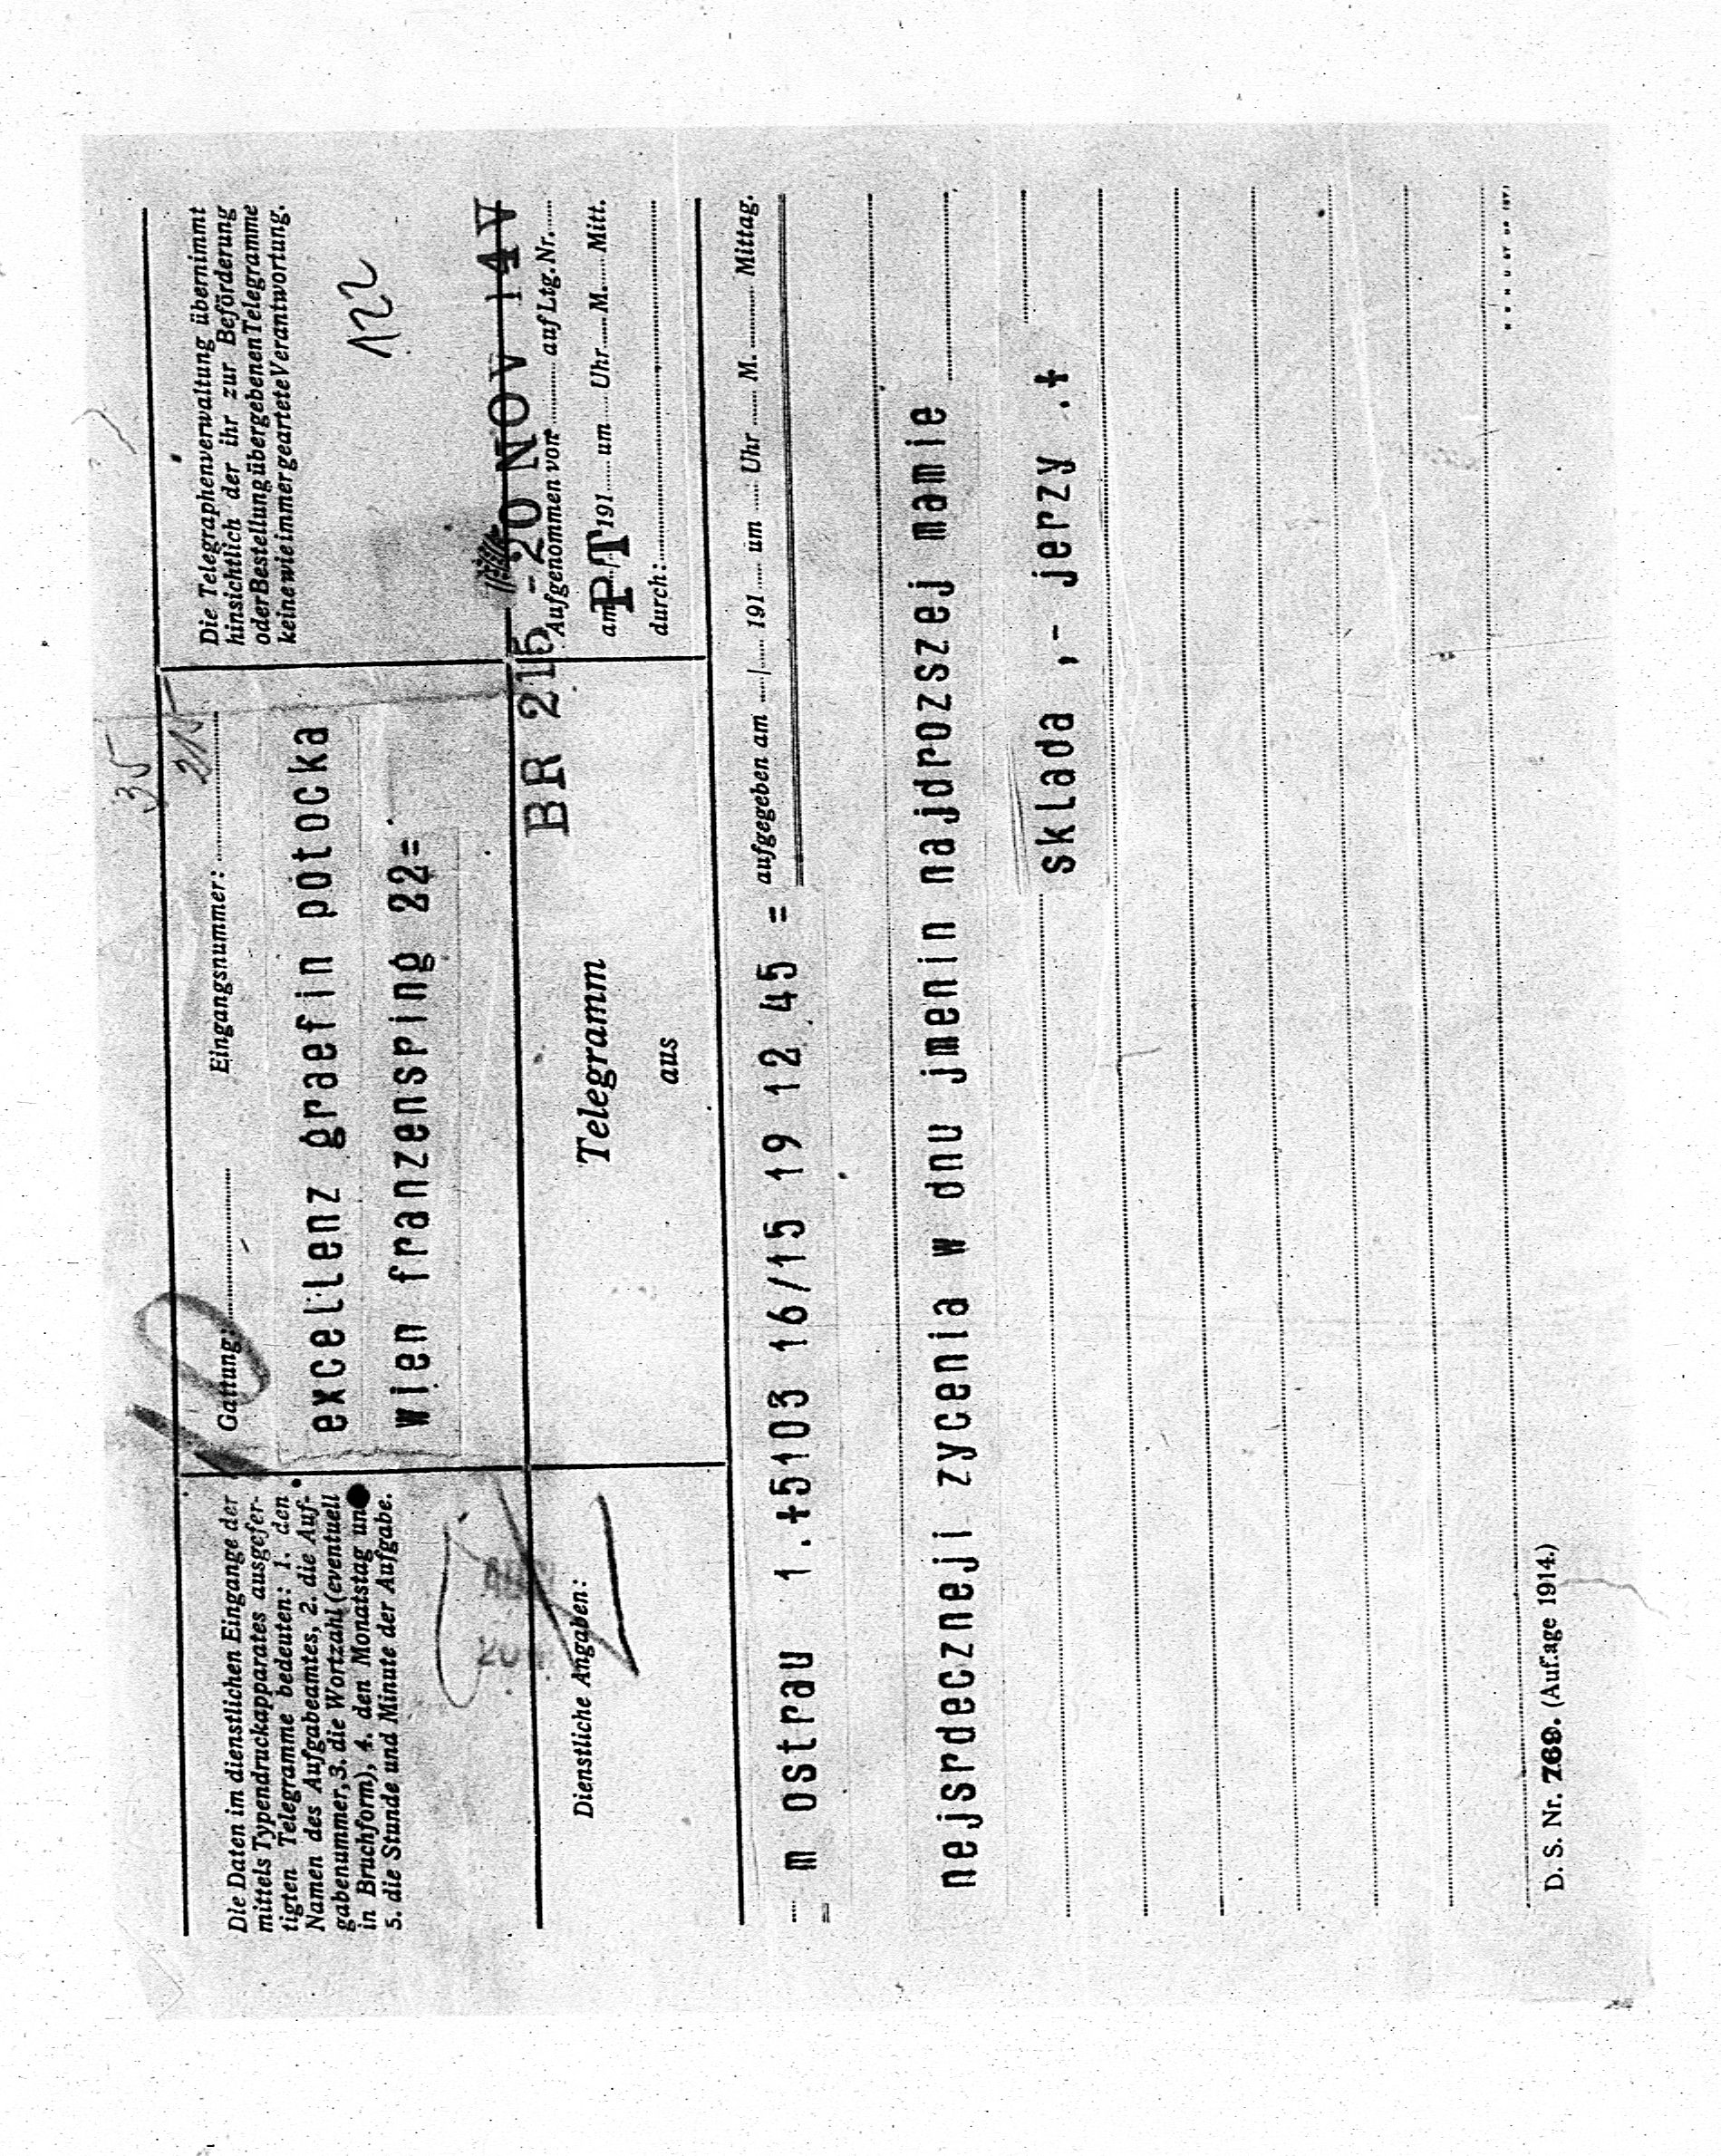 Die Daten im dienstlichen Eingange der
mittels Typendruckapparates ausgefer-
tigten Telegramme bedeuten: 1. den
Namen des Aufgabeamtes, 2. die Auf-
gabenummer, 3. die Wortzahl (eventuell
in Bruchform), 4. den Monatstag und
5. die Stunde und Minute der Aufgabe.
35
10
Gattung: Eingangsnummer: 215
excellenz graefin potocka
wien franzensring 22=
Die Telegraphenverwaltung übernimmt
hinsichtlich der ihr zur Beförderung
oder Bestellung übergebenen Telegramme
keine wie immer geartete Verantwortung.
122
Dienstliche Angaben:
Telegramm
aus
BR 215 -20 NOV 14V
Aufgenommen von auf Ltg. Nr.
am PT 191 um Uhr M. Mitt.
durch:
= m ostrau 1.+5103 16/15 19 12 45 = aufgegeben am / 191 um Uhr M. Mittag.
nejsrdeczneji zycenia w dnu jmenin najdrozszej mamie
sklada ,- jerzy .+
D. S. Nr. 769. (Auflage 1914.)